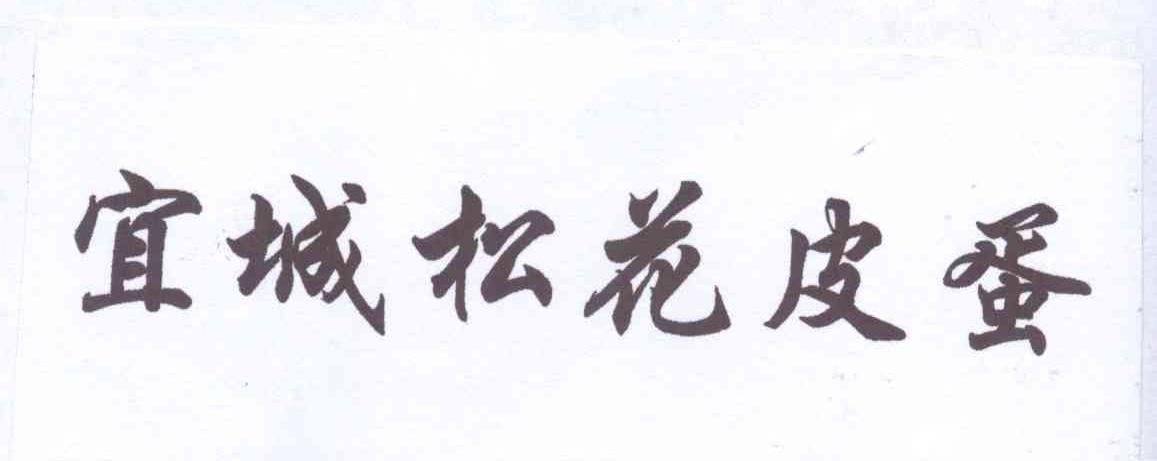 宜城松花皮蛋